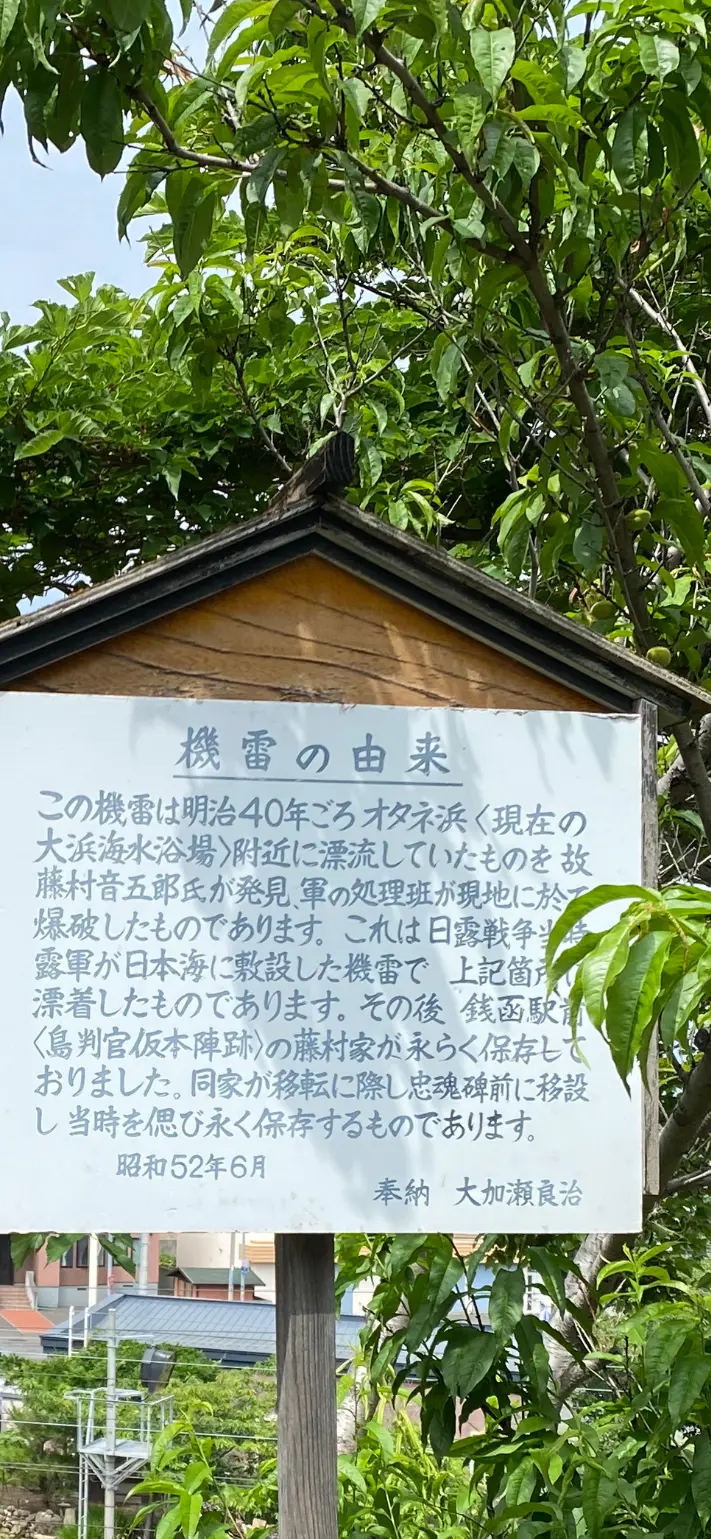 機雷の由来
この機雷は明治40年ごろオタネ浜〈現在の
大浜海水浴場〉附近に漂流していたものを故
藤村音五郎氏が発見、軍の処理班が現地に於て
爆破したものであります。これは日露戦争当時
露軍が日本海に敷設した機雷で 上記箇所
漂着したものであります。その後 銭函駅前
〈島判官仮本陣跡〉の藤村家が永らく保存して
おりました。同家が移転に際し忠魂碑前に移設
し当時を偲び永く保存するものであります。
昭和52年6月
奉納 大加瀬良治